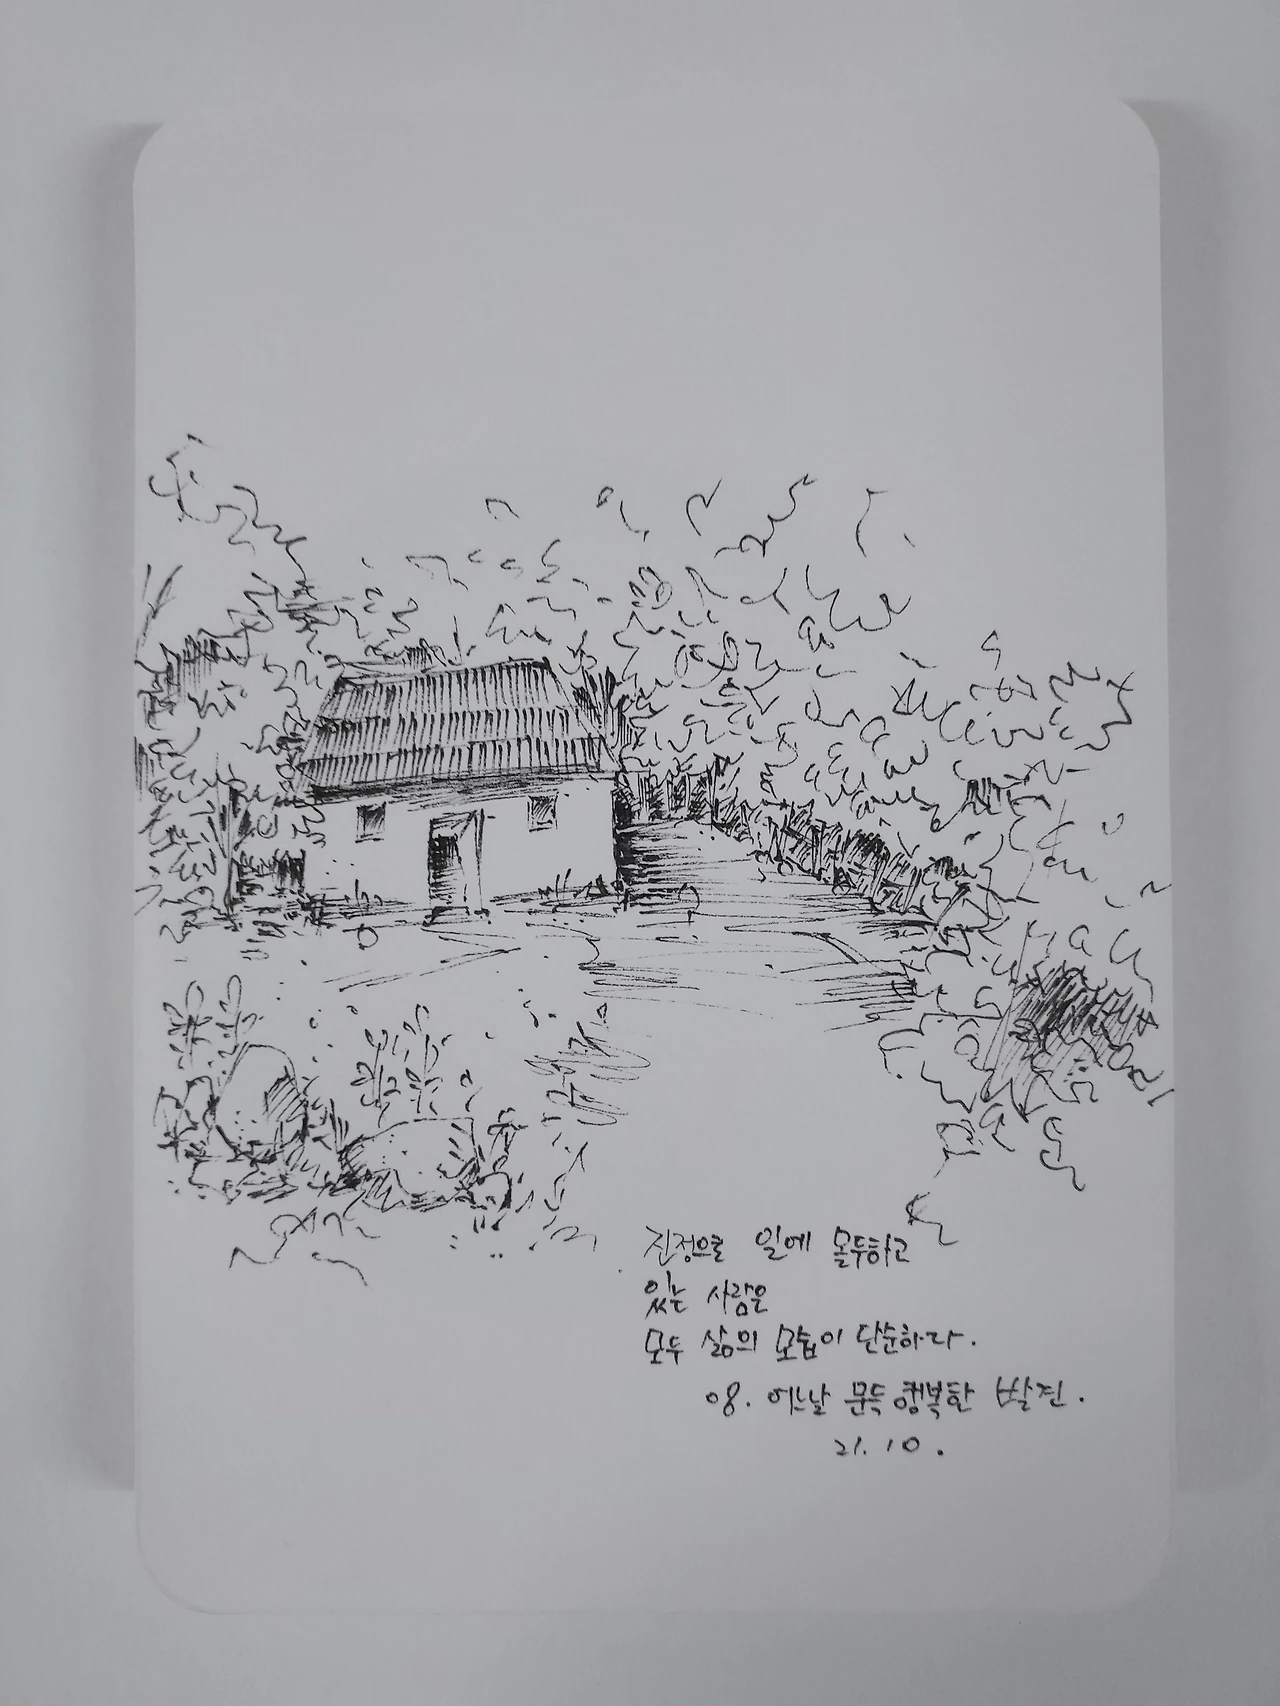 진정으로 일에 몰두하고
있는 사람은
모두 삶의 모습이 단순하다.
08. 어느날 문득 행복한 발견.
21. 10.